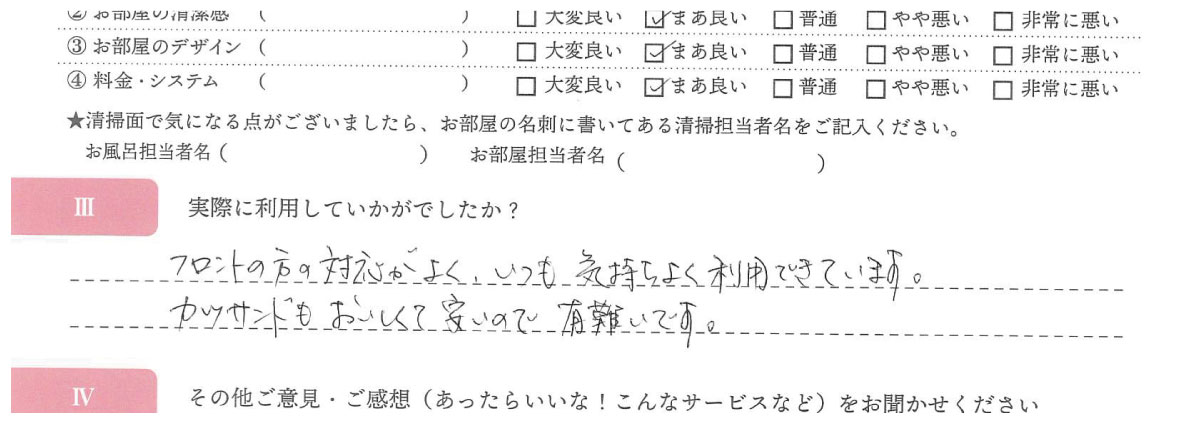 ② お部屋の清潔感 ( ) □ 大変良い ☑ まあ良い □ 普通 □ やや悪い □ 非常に悪い
③ お部屋のデザイン ( ) □ 大変良い ☑ まあ良い □ 普通 □ やや悪い □ 非常に悪い
④ 料金・システム ( ) □ 大変良い ☑ まあ良い □ 普通 □ やや悪い □ 非常に悪い
★清掃面で気になる点がございましたら、お部屋の名刺に書いてある清掃担当者名をご記入ください。
お風呂担当者名 ( ) お部屋担当者名 ( )
Ⅲ 実際に利用していかがでしたか?
フロントの方の対応がよく、いつも気持ちよく利用できています。
カツサンドもおいしくて安いので有難いです。
Ⅳ その他ご意見・ご感想(あったらいいな!こんなサービスなど)をお聞かせください